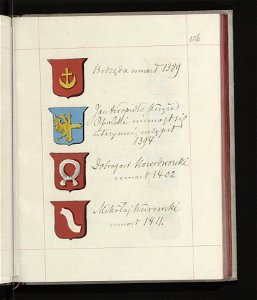 106
Bodzęta umarł 1389
Jan Kropidło Książe
Opolski
1394
Dobrogost Nowodworski
umarł 1402
Mikołaj Kurowski
umarł 1411.